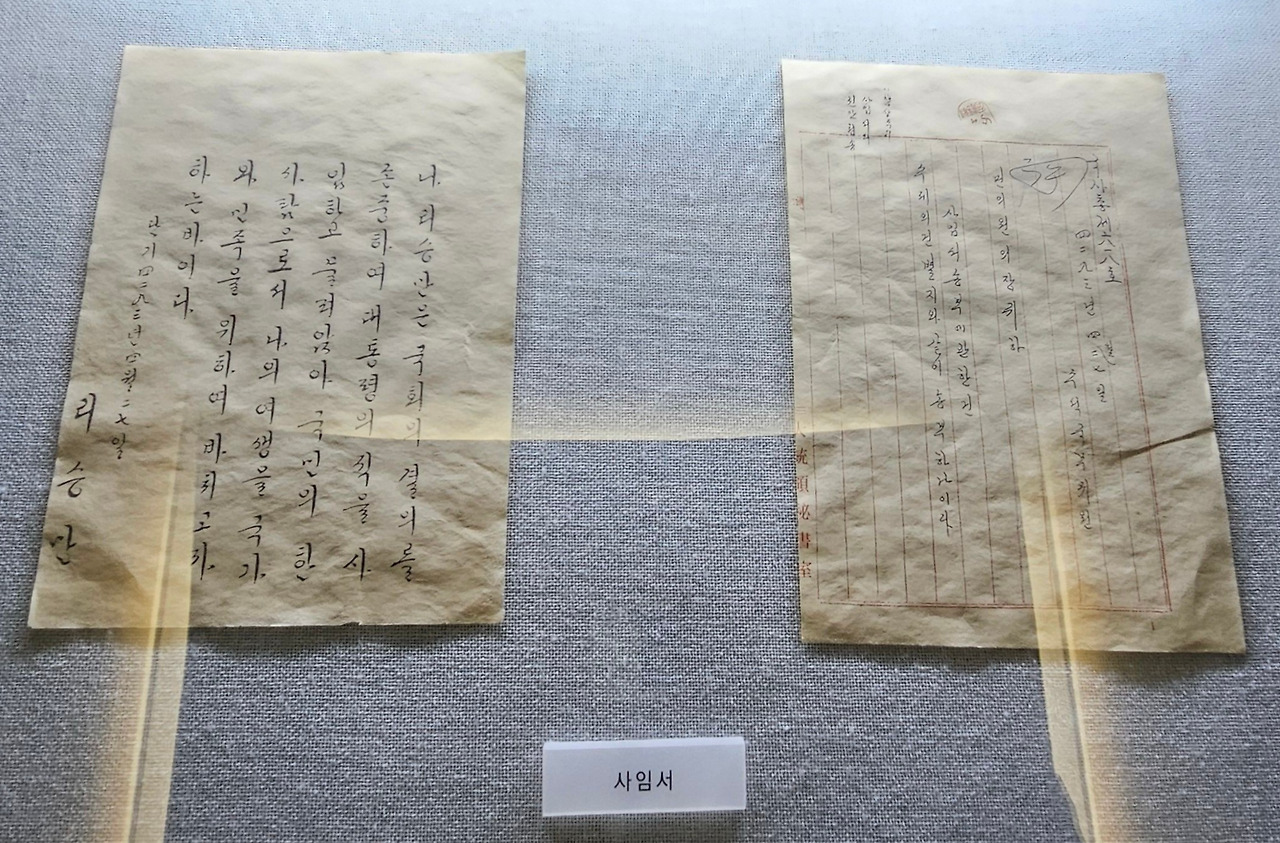 나 리승만은 국회의 결의를
존중하여 대통령의 직을 사
임하고 물러앉아 국민의 한
사람으로서 나의 여생을 국가
와 민족을 위하여 바치고자
하는바이다
단기 四二九三년 四월 二七일
리승만
四二九三년 四월 二七일
수석국무위원
민의원의장 귀하
사임서 송부에 관한 건
수제의 건 별지와 같이 송부하나이다
統領祕書室
사임서